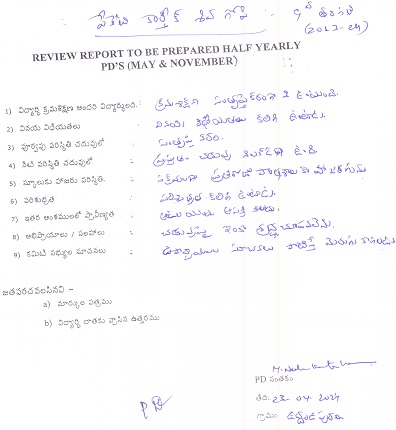 పేకేటి కార్తీక్ శివ గోపి - 9వ తరగతి
(2023-24)
REVIEW REPORT TO BE PREPARED HALF YEARLY
PD'S (MAY & NOVEMBER)
1) విద్యార్థి క్రమశిక్షణ అందరి విద్యార్థులది. : క్రమశిక్షణ సంతృప్తికరంగా ఉంది
2) వినయ విధేయతలు : వినయ విధేయతలు కలిగి ఉంటాడు.
3) పూర్వపు పరిస్థితి చదువులో : సంతృప్తికరం.
4) నేటి పరిస్థితి చదువులో : ప్రస్తుతం చదువు ఉంది
5) స్కూలుకు హాజరు పరిస్థితి. : సక్రమంగా ప్రతిరోజు పాఠశాలకు హాజరగును
6) పరిశుభ్రత : పరిశుభ్రత కలిగి ఉంటాడు.
7) ఇతర అంశములలో ప్రావీణ్యత : ఆటలయందు ఆసక్తి కలదు.
8) అభిప్రాయాలు / సలహాలు : చదువుపై ఇంకా శ్రద్ధ చూపవలెను.
9) కమిటి సభ్యుల సూచనలు : ఉపాధ్యాయుల సూచనలు పాటిస్తే మెరుగు కాగలడు
జతపరచవలసినవి –
a) మార్కుల పత్రము
b) విద్యార్థి దాతకు వ్రాసిన ఉత్తరము
PD సంతకం
తది. 23-04-2024
PD
గ్రామం: